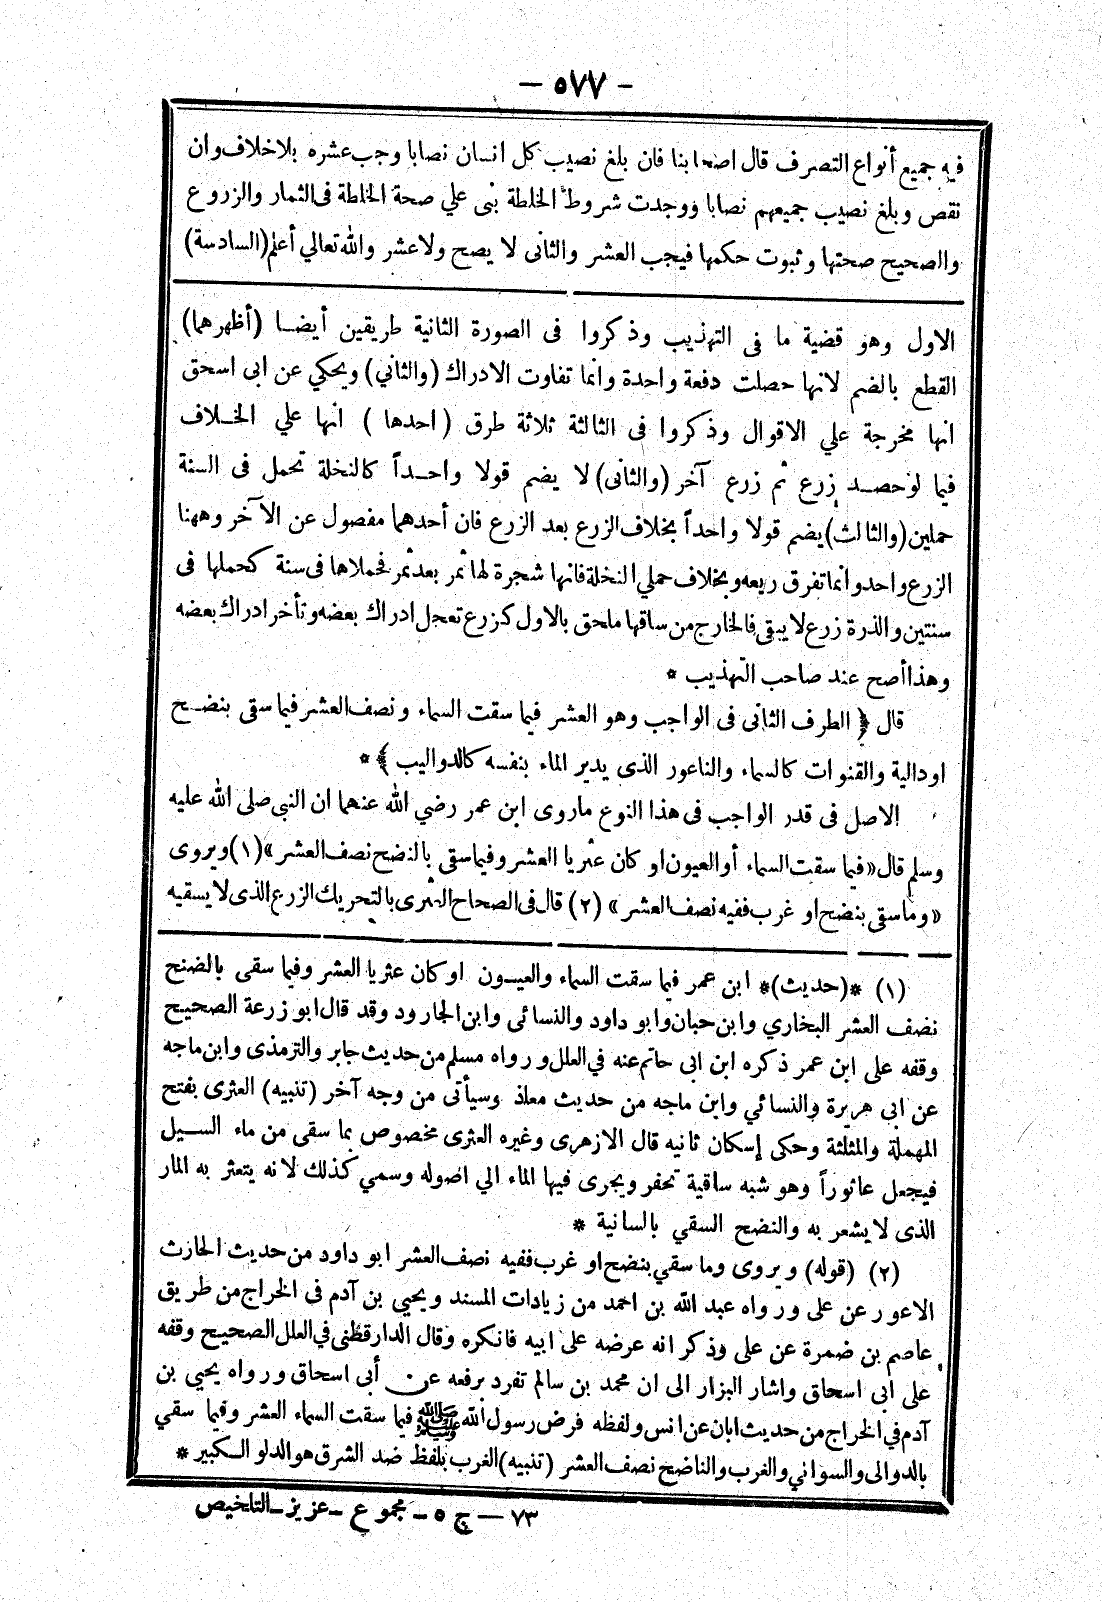 - ٥٧٧ -
فيه جميع أنواع التصرف قال اصحابنا فان بلغ نصيب كل انسان نصابا وجب عشره بلاخلاف وان
نقص وبلغ نصيب جميعهم نصابا ووجدت شروط الخلطة بنى علي صحة الخلطة فى الثمار والزروع
والصحيح صحتها وثبوت حكمها فيجب العشر والثانى لا يصح ولاعشر والله تعالي أعلم (السادسة)
الاول وهو قضية ما فى التهذيب وذكروا فى الصورة الثانية طريقين أيضا (أظهرهما)
القطع بالضم لانها حصلت دفعة واحدة وانما تفاوت الادراك (والثاني) ويحكي عن ابى اسحق
انها مخرجة علي الاقوال وذكروا فى الثالثة ثلاثة طرق (احدها) انها علي الخلاف
فيما لو حصد زرع ثم زرع آخر (والثانى) لا يضم قولا واحداً كالنخلة تحمل فى السنة
حملين (والثالث) يضم قولا واحداً بخلاف الزرع بعد الزرع فان أحدهما مفصول عن الآخر وههنا
الزرع واحد وانما تفرق ريعه وبخلاف حملي النخلة فانها شجرة لها ثمر بعد ثمر فحملاها فى سنة كحملها فى
سنتين والذرة زرع لا يبقى فالخارج من ساقها ملحق بالاول كزرع تعجل ادراك بعضه وتأخر ادراك بعضه
وهذا أصح عند صاحب التهذيب *
قال ﴿ الطرف الثانى فى الواجب وهو العشر فيما سقت السماء ونصف العشر فيما سقى بنضح
اودالية والقنوات كالسماء والناعور الذى يدير الماء بنفسه كالدواليب ﴾ *
الاصل فى قدر الواجب فى هذا النوع ماروى ابن عمر رضي الله عنهما ان النبى صلى الله عليه
وسلم قال «فيما سقت السماء أو العيون او كان عثريا العشر وفيما سقى بالنضح نصف العشر» (١) ويروى
«وما سقى بنضح او غرب ففيه نصف العشر» (٢) قال فى الصحاح العثرى بالتحريك الزرع الذى لا يسقيه
(١) *(حديث)* ابن عمر فيما سقت السماء والعيون او كان عثريا العشر وفيما سقى بالنضح
نصف العشر البخاري وابن حبان وابو داود والنسائى وابن الجارود وقد قال ابو زرعة الصحيح
وقفه على ابن عمر ذكره ابن ابى حاتم عنه في العلل ورواه مسلم من حديث جابر والترمذى وابن ماجه
عن ابى هريرة والنسائي وابن ماجه من حديث معاذ وسيأتى من وجه آخر (تنبيه) العثرى بفتح
المهملة والمثلثة وحكى إسكان ثانيه قال الازهرى وغيره العثرى مخصوص بما سقى من ماء السيل
فيجعل عاثوراً وهو شبه ساقية تحفر ويجرى فيها الماء الي اصوله وسمي كذلك لانه يتعثر به المار
الذى لا يشعر به والنضح السقي بالسانية *
(٢) (قوله) ويروى وما سقي بنضح او غرب ففيه نصف العشر ابو داود من حديث الحارث
الاعور عن على ورواه عبد الله بن احمد من زيادات المسند ويحيي بن آدم فى الخراج من طريق
عاصم بن ضمرة عن على وذكر انه عرضه على ابيه فانكره وقال الدارقطنى في العلل الصحيح وقفه
على ابى اسحاق واشار البزار الى ان محمد بن سالم تفرد برفعه عن أبى اسحاق ورواه يحيي بن
آدم في الخراج من حديث ابان عن انس ولفظه فرض رسول الله ﷺ فيما سقت السماء العشر وفيما سقي
بالدوالى والسواني والغرب والناضح نصف العشر (تنبيه) الغرب بلفظ ضد الشرق هو الدلو الكبير *
٧٣ — ج ٥ - مجموع - عزيز - التلخيص